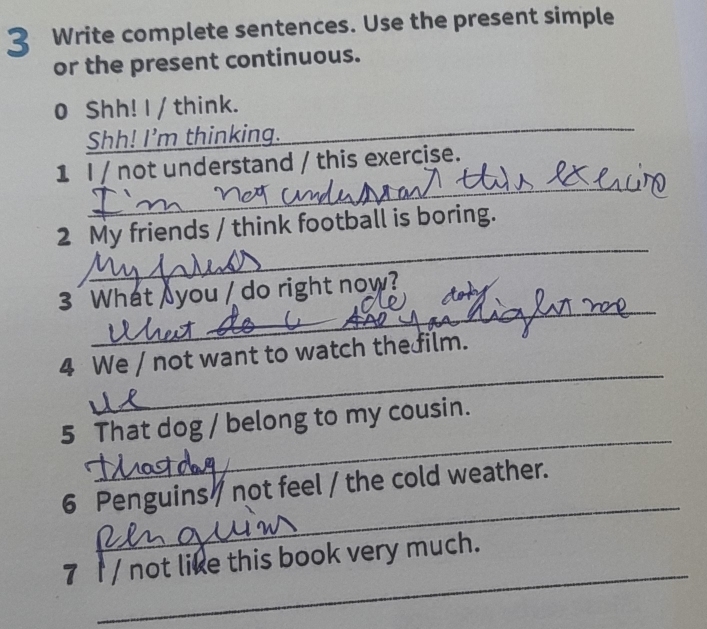 3 Write complete sentences. Use the present simple
or the present continuous.
0 Shh! I / think.
Shh! I'm thinking.
1 I / not understand / this exercise.
I'm not understant this exercise
2 My friends / think football is boring.
My friends
3 What / you / do right now?
What do you right now
4 We / not want to watch the film.
we
5 That dog / belong to my cousin.
that dog
6 Penguins / not feel / the cold weather.
penguins
7 I / not like this book very much.